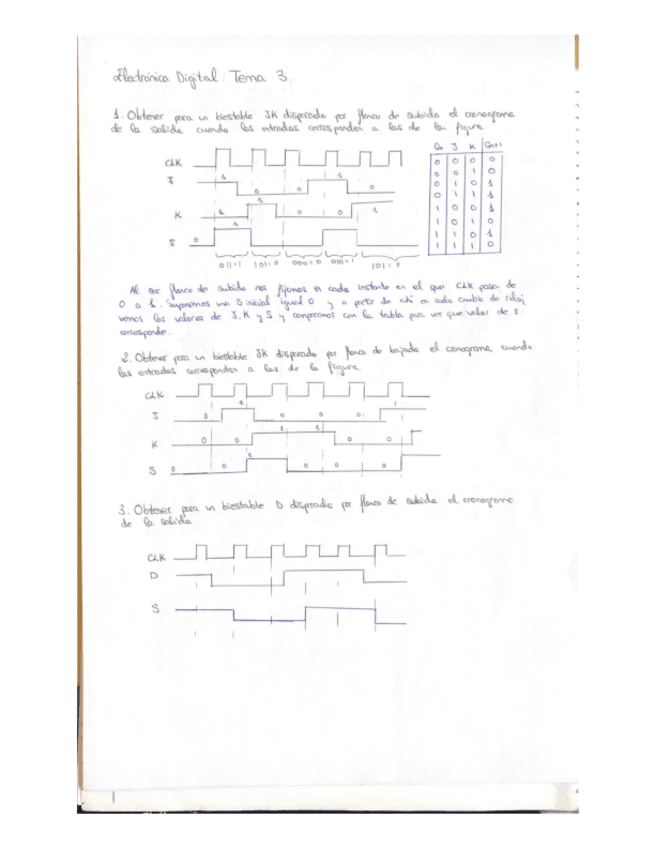 Electrónica Digital: Tema 3.
1. Obtener para un biestable JK disparado por flanco de subida el cronograma
de la salida cuando las entradas corresponden a las de la figura
CLK
J 1 0 0 1 0
K 1 1 0 0 1
S 0 1
011=1 101=0 000=0 010=1 101=0
Qn J K Qn+1
0 0 0 0
0 0 1 0
0 1 0 1
0 1 1 1
1 0 0 1
1 0 1 0
1 1 0 1
1 1 1 0
Al ser flanco de subida nos fijamos en cada instante en el que CLK pasa de
0 a 1. Suponemos una S inicial igual 0 y a partir de ahí en cada cambio de reloj
vemos los valores de J, K y S y comparamos con la tabla para ver que valor de S
corresponde.
2. Obtener para un biestable JK disparado por flanco de bajada el cronograma cuando
las entradas corresponden a las de la figura
CLK
J 0 1 0 0 0 1
K 0 0 1 1 0 0
S 0 0 1 0 0 0
3. Obtener para un biestable D disparado por flanco de subida el cronograma
de la salida
CLK
D
S